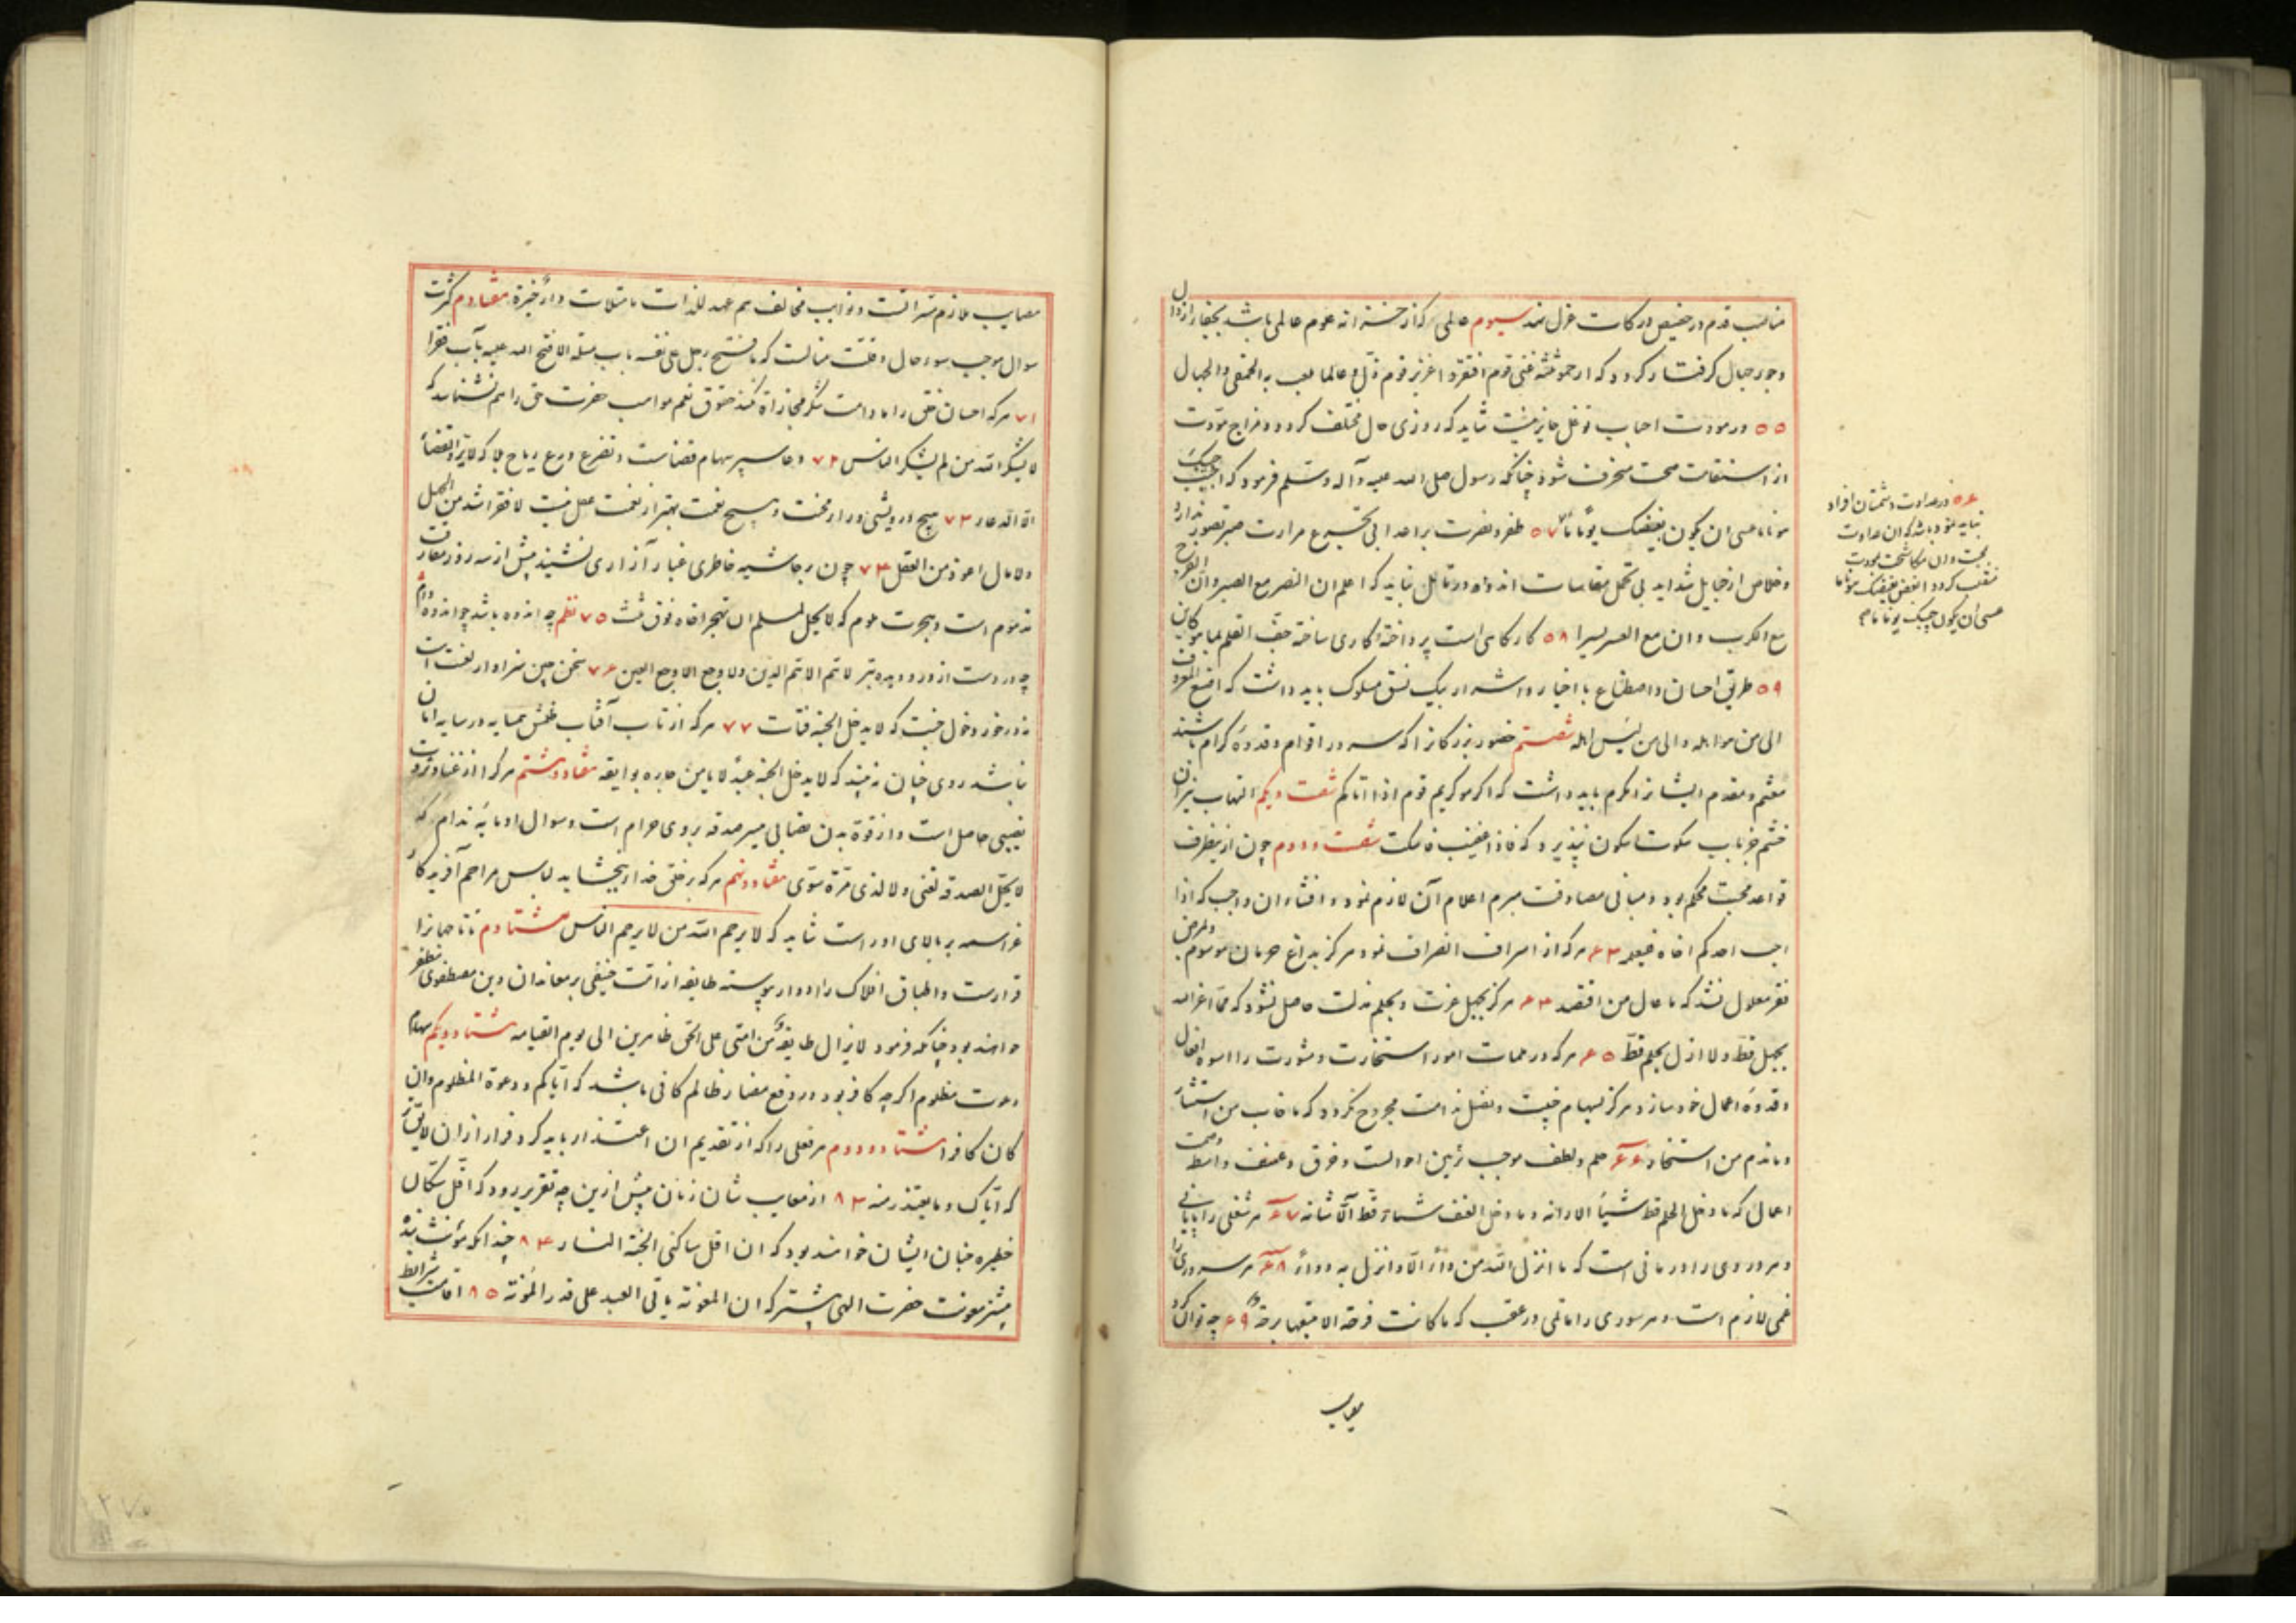 مناصب قدم در حضیض درکات عزل نهد سیوم عالمی که از خسته‌اند عموم عالمی باشد بچفا ارذال
و جور جهال گرفتار گردد که ارحموا ثلثه غنی قوم افتقر و اعزیز قوم ذل و عالما یلعب به الحمقی و الجهال
۵۵ در مودت احباب توغل جایز نیست شاید که روزی حال مختلف گردد و مزاج مودت
از استقامت محبت منحرف شود چنانکه رسول صلی الله علیه وآله وسلم فرمود که احبب حبیبک
هونا ما عسی ان یکون بغیضک یوما ما ۵۷ ظفر و نصرت بر اعدا بی تجرع مرارت صبر تصور ندارد
و خلاص از شداید بی تحمل مقاسات اندواه در تاتل نیاید که اعلم ان النصر مع الصبر وان الفرج
مع الکرب وان مع العسر یسرا ۵۸ کار کاهی است پرداخته کاری ساخته جف القلم بما هو کاین
۵۹ طریق احسان و اصطناع با اخیار و اشرار بیک نسق مسلوک باید داشت که اصنع المعروف
الی من هو اهله و الی من لیس اهله شصتم حضور بزرگانرا که سرور اقوام و قدوه کرام باشند
مغتنم و مقدم ایشانرا مکرم باید داشت که اکرموا کریم قوم اذا اتاکم شصت و یکم التهاب نیران
خشم جز باب سکوت سکون نپذیرد که فاذا غضبت فاسکت شصت و دوم چون از یکطرف
قواعد محبت محکم بود و مبانی مصادقت مبرم اعلام آن لازم نمود و افشاء ان واجب که اذا
احب احدکم اخاه فلیعلمه ۶۳ هرکه از اسراف انصراف نمود هرگز بداغ حرمان موسوم و بمرض
فقر معلول نشد که ما عال من اقتصد ۶۴ هرگز بجهل عزت و بحلم مذلت حاصل نشود که ما اعز الله
بجهل قط ولا اذل بحلم قط ۶۵ هرکه در مهمات امور استخارت و مشورت را اسوه افعال
و قدوه اعمال خود سازد هرگز بسهام خیبت و نصل ندامت مجروح نگردد که ما خاب من استشار
و ما ندم من استخار ۶۶ حلم و لطف موجب تزیین احوالست و خرق و عنف واسطه وصمت
اعمال که ما دخل الحلم قط شیئا الا زانه و ما دخل العنف شیئا قط الا شانه ۶۷ هر شغلی را پایانی
و هر دردی را درمانی است که ما انزل الله من داء الا و انزل به دواء ۶۸ هر سروری را
غمی لازم است و هر سوری را ماتمی در عقب که ما کانت فرحة الا تتبعها برحة ۶۹ چه توان کرد
مصایب
۵۶ در عداوت دشمنان افراد
نباید نمود باشد که آن عداوت
بمحبت و آن مکاشحت بمودت
منقلب گردد ابغض بغیضک هونا ما
عسی ان یکون حبیبک یوما ما
مصایب ملازم منزلتست و نوایب مخالف هم عهد لذات ما متلات دار خبرة هفتادم کثرت
سوال موجب سوء حال و قلت منالست که ما فتح رجل علی نفسه باب مسئلة الا فتح الله علیه باب فقرا
۷۱ هرکه احسان خلق را مادامت شکر مجازاة نکند حقوق نعم مواهب حضرت حق را هم نشناسد که
لا یشکر الله من لم یشکر الناس ۷۲ دعا سپر سهام قضاست و تضرع درع ریاح بلا که لا یرد القضا
الا الدعاء ۷۳ هیچ درویشی ورای محنت و هیچ نعمت بهتر از نعمت عقل نیست لا فقر اشد من الجهل
ولا مال اعود من العقل ۷۴ چون بر حاشیه خاطری غبار آزاری نشیند بیش از سه روز مفارقت
مذموم است و هجرت ملوم که لا یحل لمسلم ان یهجر اخاه فوق ثلث ۷۵ نظم چه اندوه باشد چو اندوه وام
چه دردست از درد دیده بتر لا هم الا هم الدین ولا وجع الا وجع العین ۷۶ سخن چین سزاوار لعنت است
نه درخور دخول جنت که لا یدخل الجنة قتات ۷۷ هرکه از تاب آفتاب ظلمش همسایه در سایه امان
نباشد روی جنان نبیند که لا یدخل الجنة عبد لا یامن جاره بوایقه هفتاد و هشتم هرکرا از غنا و ثروت
نصیبی حاصل است و از قوة بدن نصابی میسر صدقه بروی حرام است و سوال او مایه ندام که
لا یحل الصدقة لغنی ولا لذی مرة سوی هفتاد و نهم هرکه بر خلق خدا نبخشاید لباس مراحم آفریدگار
عز اسمه بر بالای او راست نیاید که لا یرحم الله من لا یرحم الناس هشتادم تا جهانرا
قرارست و اطباق افلاک را ادوار پیوسته طایفه از امت حنیفی بر معاندان دین مصطفوی مظفر
خواهند بود چنانکه فرمود لا یزال طایفة من امتی علی الحق ظاهرین الی یوم القیامه هشتاد و یکم سهام
دعوت مظلوم اگرچه کافر بود در دفع مضار ظالم کافی باشد که ایاکم و دعوة المظلوم وان
کان کافرا هشتاد و دوم هر فعلی را که از تقدیم ان اعتذار باید کرد فرار از ان لایق
که ایاک و ما یعتذر منه ۸۳ از معایب شان زنان بیش ازین چه تقریر رود که اقل سکان
خطیره جنان ایشان خواهند بود که ان اقل ساکنی الجنة النساء ۸۴ چندانکه مؤنت بنده
بیشتر معونت حضرت الهی بیشتر که ان المعونة یاتی العبد علی قدر المؤنة ۸۵ اقامت شرایط